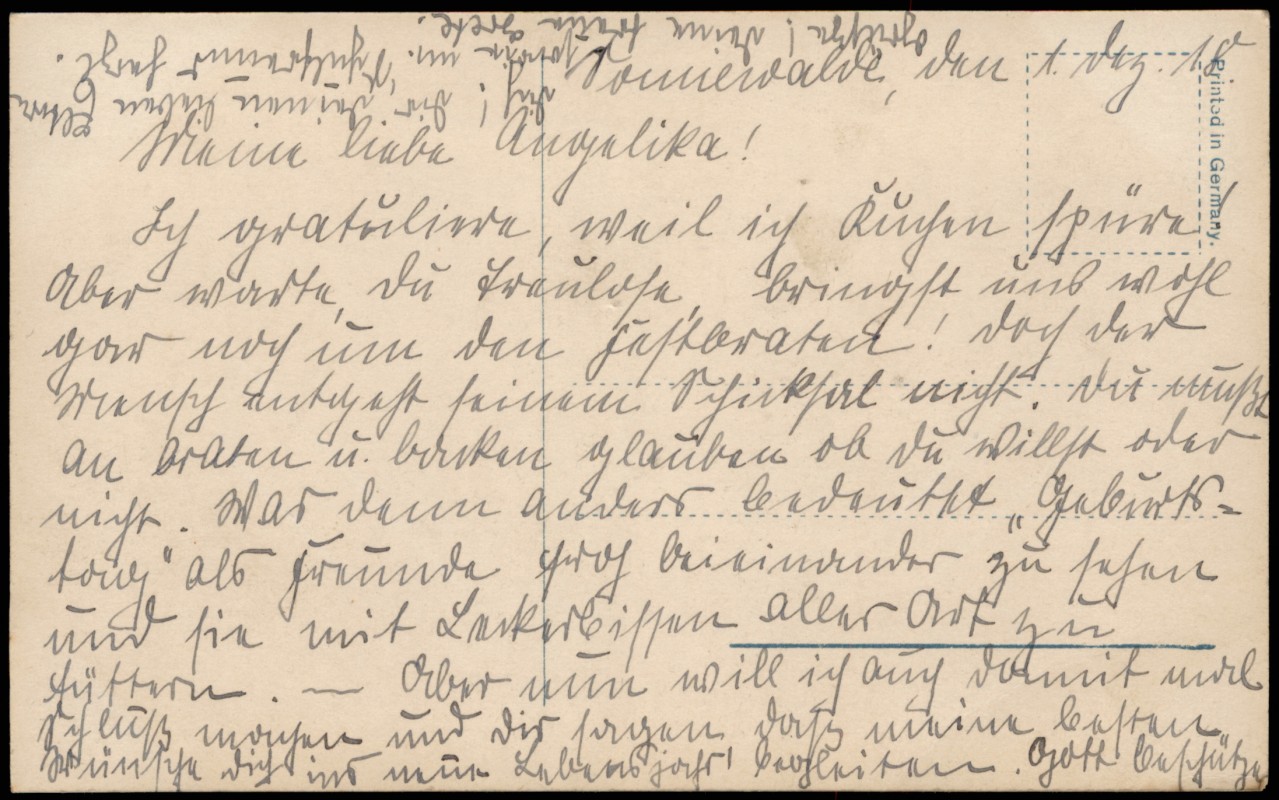 Sonnewalde, den 1. Dez. 18
Meine liebe Angelika!
Ich gratuliere, weil ich Kuchen spüre!
Aber warte, du Treulose, bringst uns wohl
gar noch um den Festbraten! Doch der
Mensch entgeht seinem Schicksal nicht. Du mußt
an braten u. backen glauben ob du willst oder
nicht. Was denn anders bedeutet „Geburts-
tag" als Freunde froh beieinander zu sehen
und sie mit Leckerbissen aller Art zu
füttern. — Aber nun will ich auch damit mal
Schluß machen und dir sagen daß meine besten
Wünsche dich ins neue Lebensjahr begleiten. Gott beschütze
dich! Dir, deinen lieben Eltern
u. herzl.
Grüße! Deine treue Grete.
Printed in Germany.